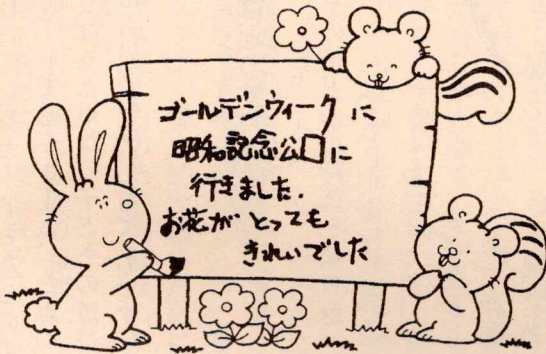 ゴールデンウィークに
昭和記念公囗に
行きました.
お花がとっても
きれいでした